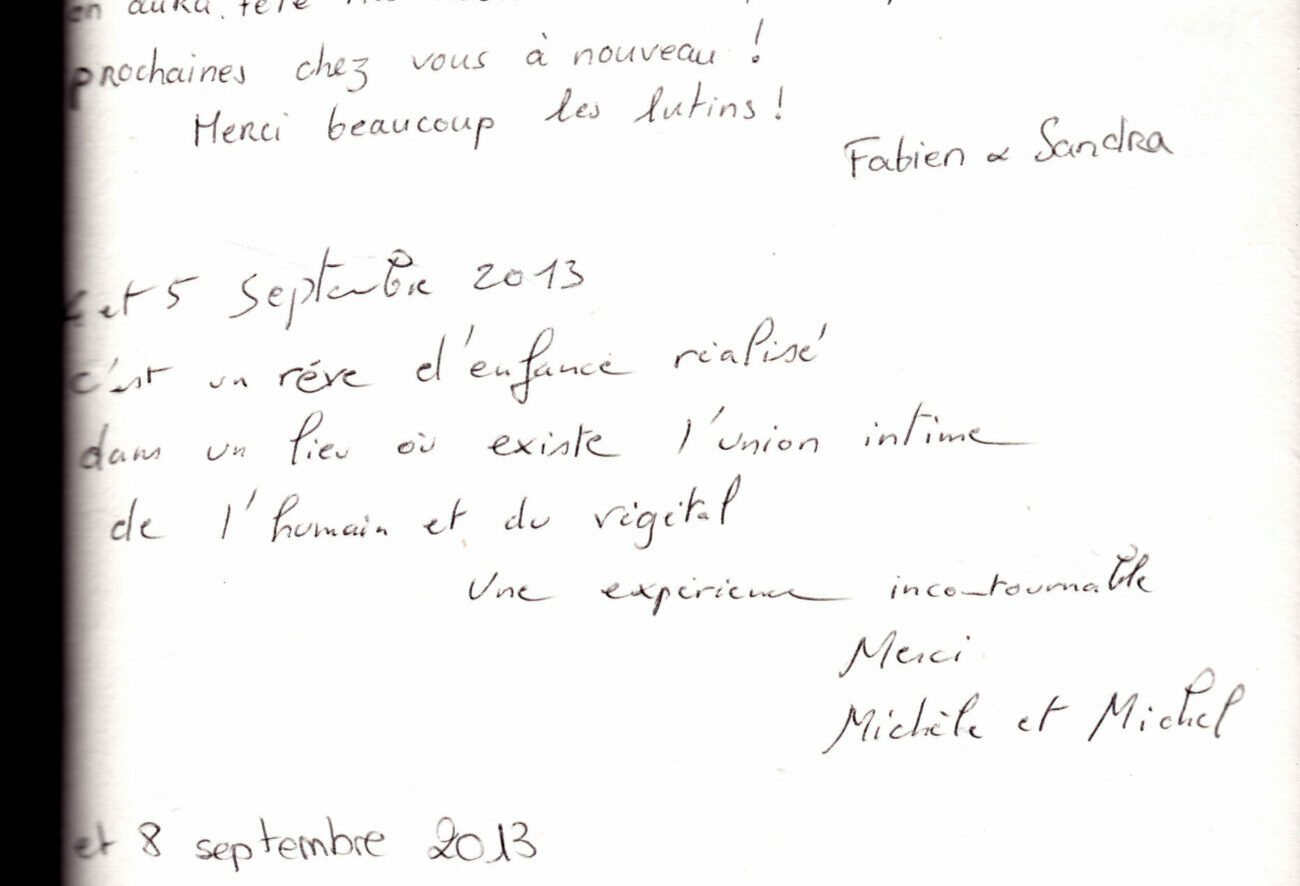 en aura fêté nos
prochaines chez vous à nouveau !
Merci beaucoup les lutins !
Fabien & Sandra
4 et 5 septembre 2013
c'est un rêve d'enfance réalisé
dans un lieu où existe l'union intime
de l'humain et du végétal
Une expérience incontournable
Merci
Michèle et Michel
et 8 septembre 2013